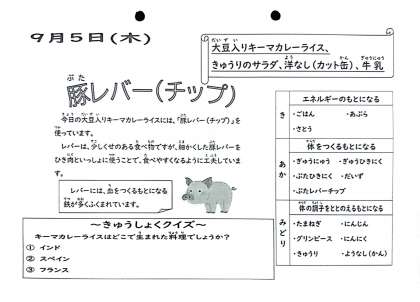 9月5日(木)
大豆入りキーマカレーライス、
きゅうりのサラダ、洋なし(カット缶)、牛乳
豚レバー(チップ)
今日の大豆入りキーマカレーライスには、「豚レバー(チップ)」を
使っています。
レバーは、少しくせのある食べ物ですが、細かくした豚レバーを
ひき肉といっしょに使うことで、食べやすくなるように工夫していま
す。
レバーには、血をつくるもとになる
鉄が多くふくまれています。
～きゅうしょくクイズ～
キーマカレーライスはどこで生まれた料理でしょうか?
① インド
② スペイン
③ フランス
き
エネルギーのもとになる
・ごはん ・あぶら
・さとう
あか
体をつくるもとになる
・ぎゅうにゅう ・ぎゅうひきにく
・ぶたひきにく ・だいず
・ぶたレバーチップ
みどり
体の調子をととのえるもとになる
・たまねぎ ・にんじん
・グリンピース ・にんにく
・きゅうり ・ようなし(かん)